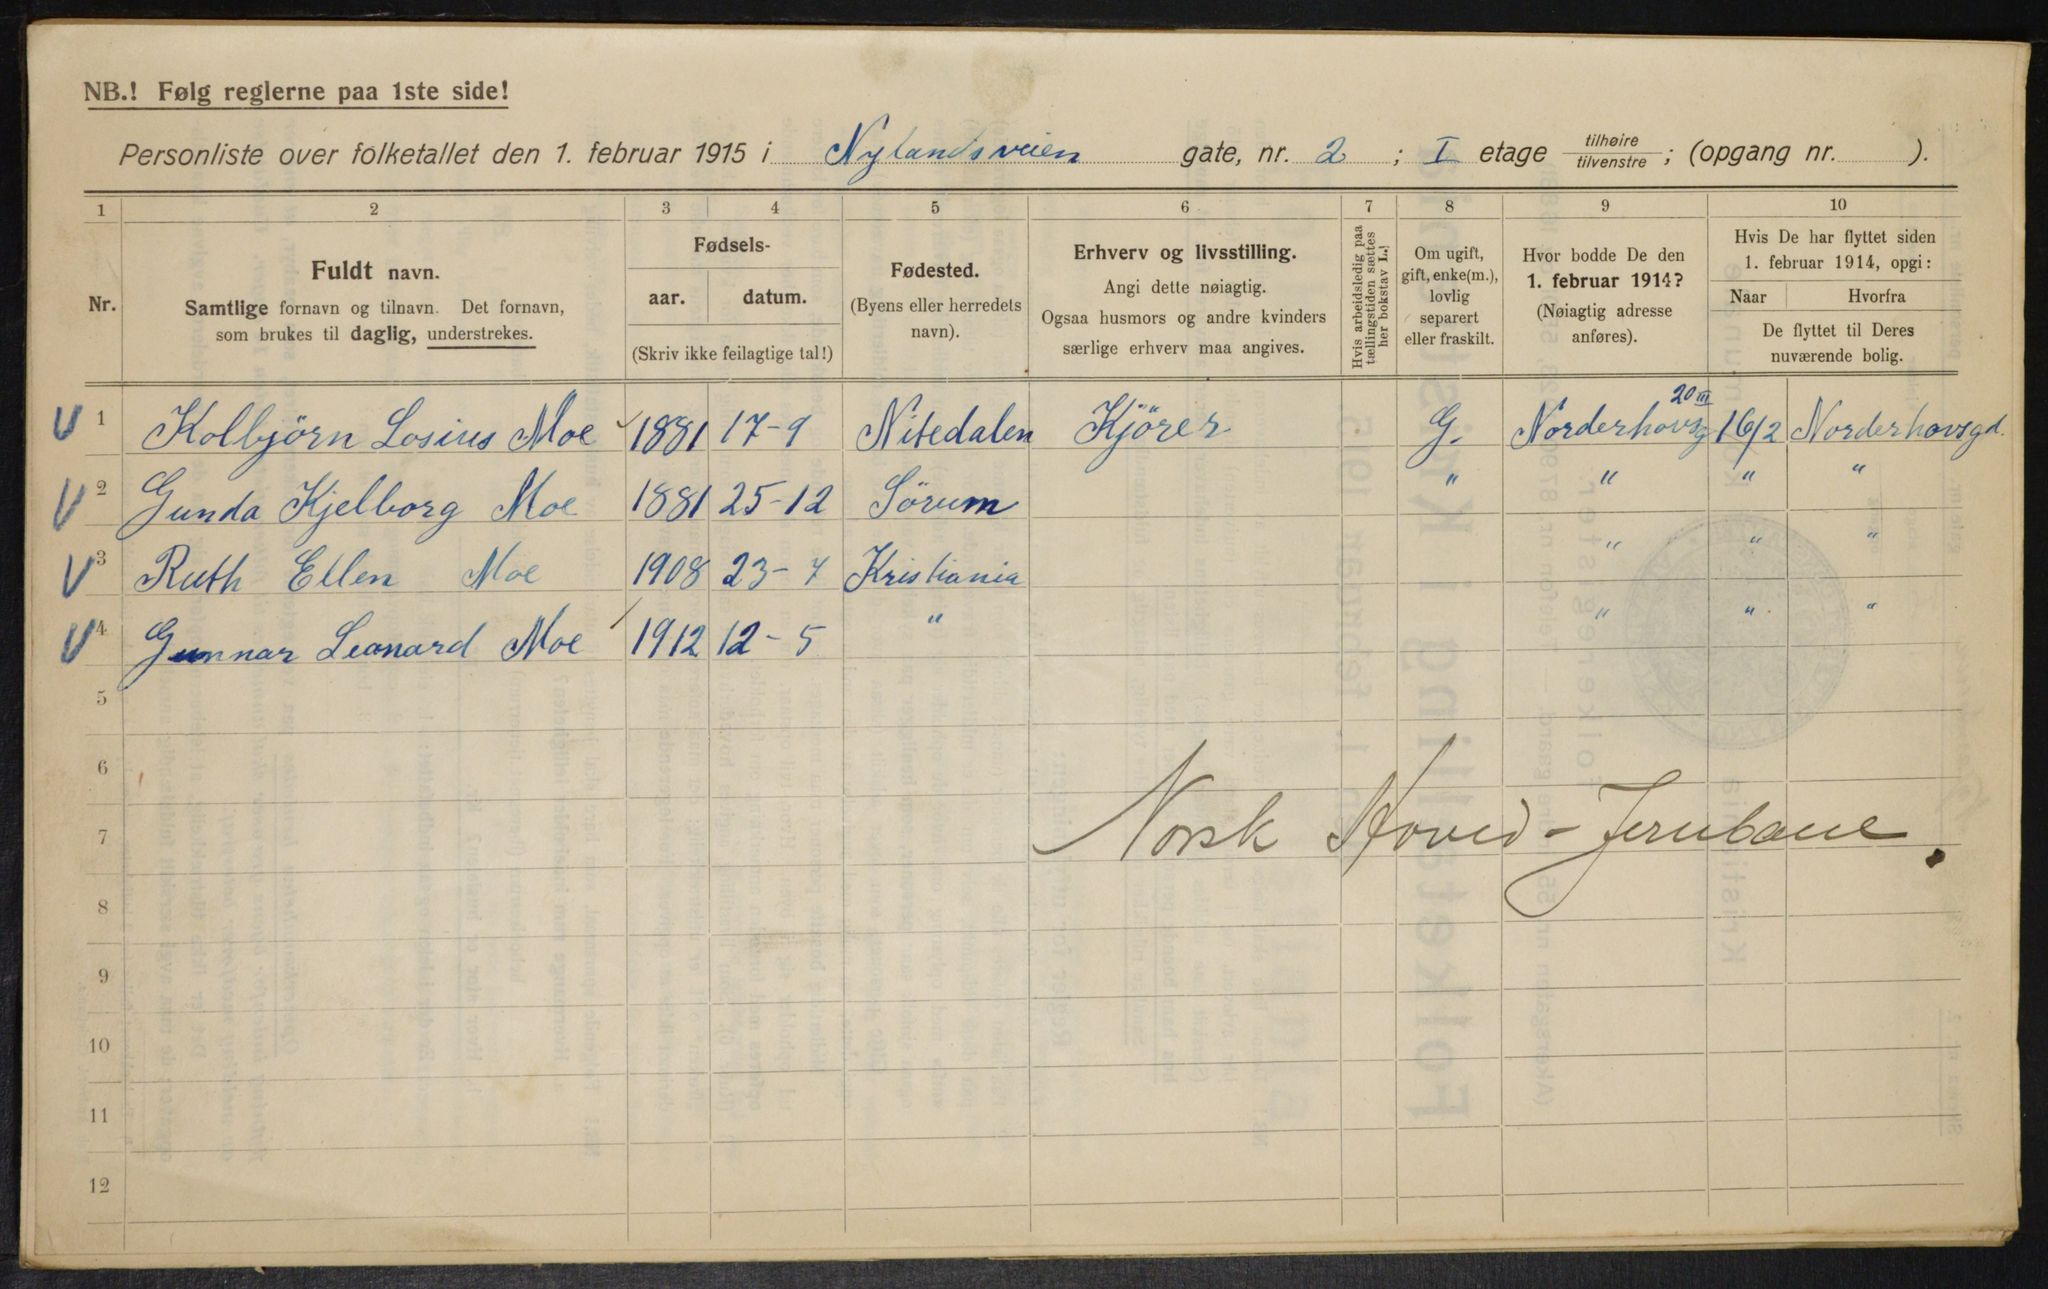 NB.! Følg reglerne paa 1ste side!
Personliste over folketallet den 1. februar 1915 i Nylandsveien gate, nr. 2 ; I etage tilhøire/tilvenstre ; (opgang nr. ).
1 2 3 4 5 6 7 8 9 10
Nr.
Fuldt navn.
Samtlige fornavn og tilnavn. Det fornavn,
som brukes til daglig, understrekes.
Fødsels-
aar. datum.
(Skriv ikke feilagtige tal!)
Fødested.
(Byens eller herredets
navn).
Erhverv og livsstilling.
Angi dette nøiagtig.
Ogsaa husmors og andre kvinders
særlige erhverv maa angives.
Hvis arbeidsledig paa
tællingstiden sættes
her bokstav L.!
Om ugift,
gift, enke(m.),
lovlig
separert
eller fraskilt.
Hvor bodde De den
1. februar 1914?
(Nøiagtig adresse
anføres).
Hvis De har flyttet siden
1. februar 1914, opgi:
Naar Hvorfra
De flyttet til Deres
nuværende bolig.
1 Kolbjörn Losius Moe 1881 17-9 Nitedalen Kjörer G. Norderhovsg 20 III 16/2 Norderhovsgd.
2 Gunda Kjelborg Moe 1881 25-12 Sörum " " " "
3 Ruth Ellen Moe 1908 23-7 Kristiania " " "
4 Gunnar Leonard Moe 1912 12-5 " " " "
5
6
7 Norsk Hoved-Jernbane.
8
9
10
11
12